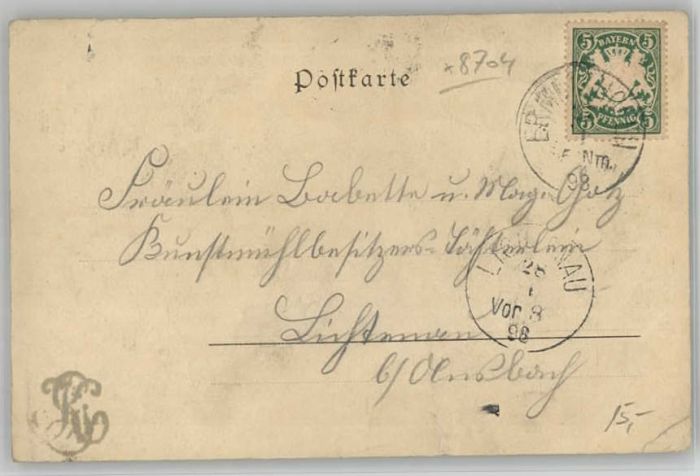 Postkarte
x8704
5 BAYERN 5
5 PFENNIG 5
Nm.
98
Fräulein Babette u. Magd. Götz
Kunstmühlbesitzers-Töchterlein
Lichtenau
b/Ansbach
NAU
Vor 8
98
15,-